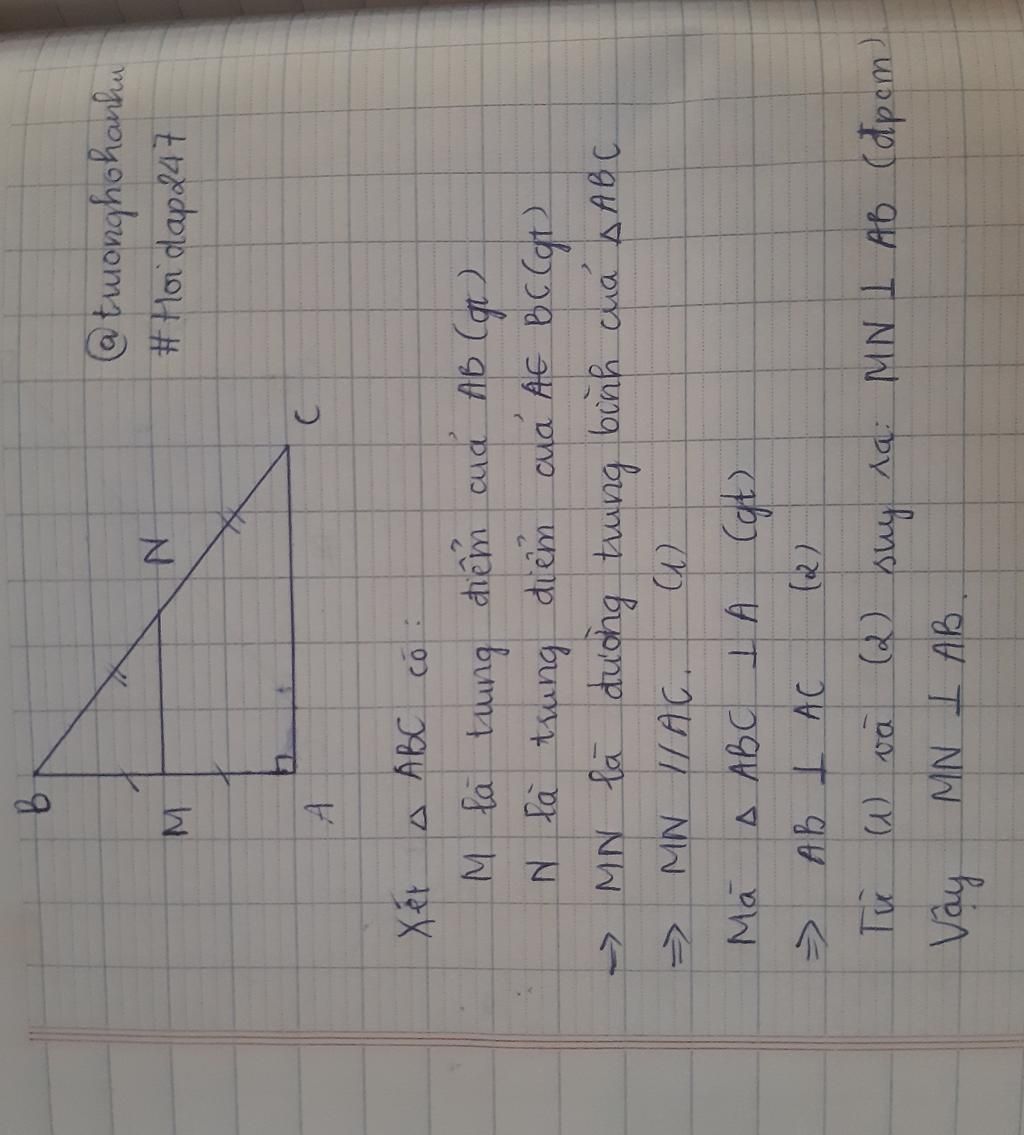 @truonghohanhu
#Hoidap247
B
M
N
A
C
Xét △ ABC có:
M là trung điểm của AB (gt)
N là trung điểm của AC BC (gt)
→ MN là đường trung bình của △ ABC
=> MN // AC. (1)
Mà △ ABC ⊥ A (gt)
=> AB ⊥ AC (2)
Từ (1) và (2) suy ra: MN ⊥ AB (đpcm)
Vậy MN ⊥ AB.